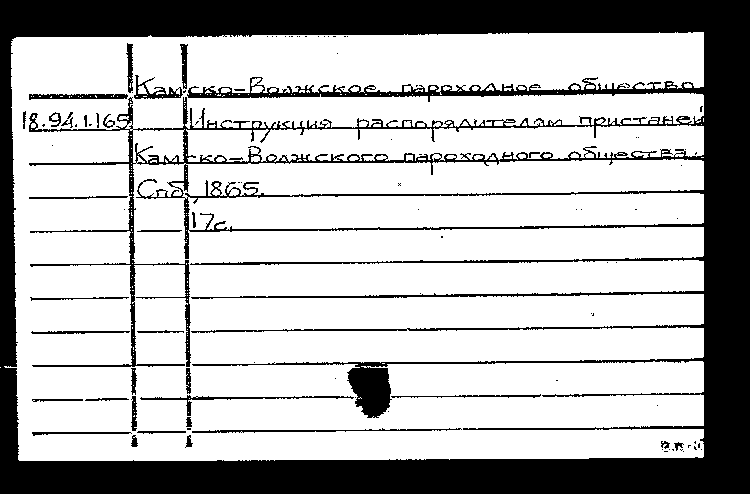 Камско-Волжское пароходное общество.
18.94.1.165 Инструкция распорядителям пристаней
Камско-Волжского пароходного общества.
Спб, 1865.
17с.